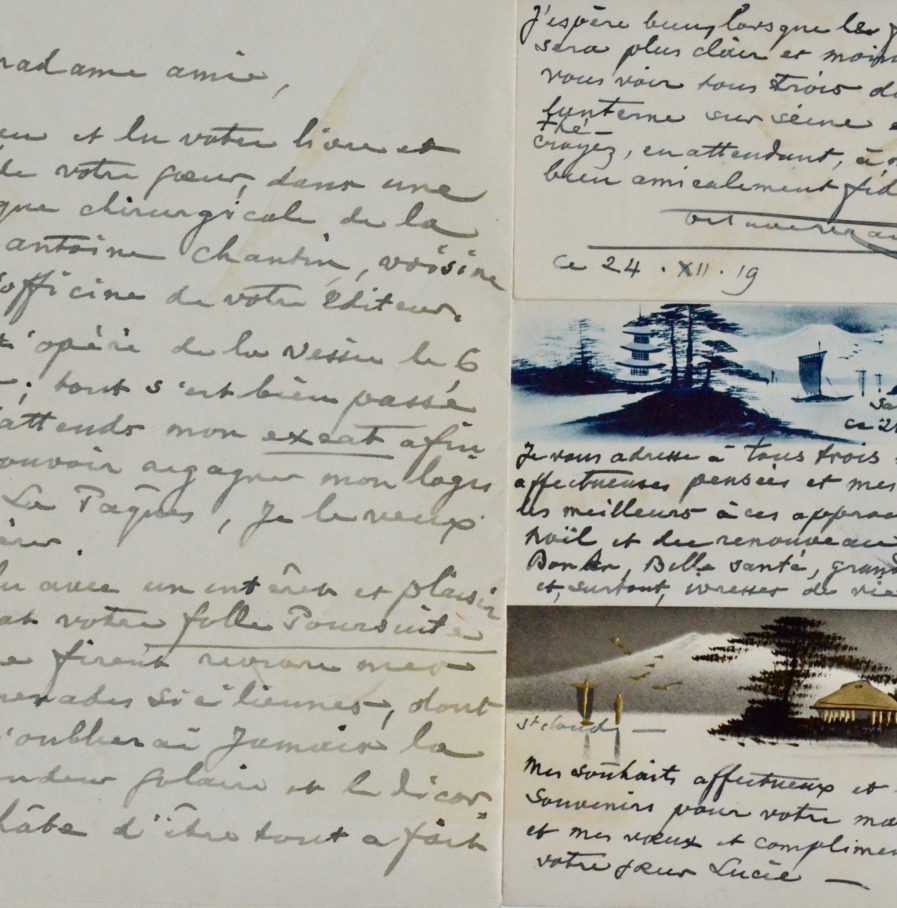 madame amie,
et lu votre livre et
de votre sœur, dans une
chirurgicale de la
antoine chantin, voisine
officine de votre Editeur.
opéré de la vessie le 6
; tout s'est bien passé
attends mon exeat afin
pouvoir regagner mon logis
La Pâques, je le veux
avec un intérêt et plaisir
votre folle Poursuite
firent revivre mes
siciliennes, dont
oublierai jamais la
solaire et le décor
hâte d'être tout a fait
J'espère bien, lorsque le
sera plus clair et moins
vous voir tous trois
lanterne sur seine
Thé
croyez, en attendant, à
bien amicalement
ce 24 . XII . 19
ce 2
Je vous adresse à tous trois
affectueuses pensées et mes
les meilleurs à ces
Noël et du renouveau
Bonheur, Belle santé,
et, surtout, ivresses de vie
St cloud —
Mes souhaits affectueux et
Souvenirs pour votre
et mes vœux et
votre sœur Lucie —